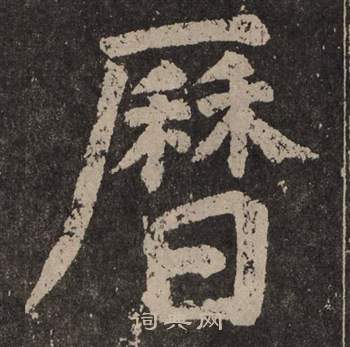 曆
词典网